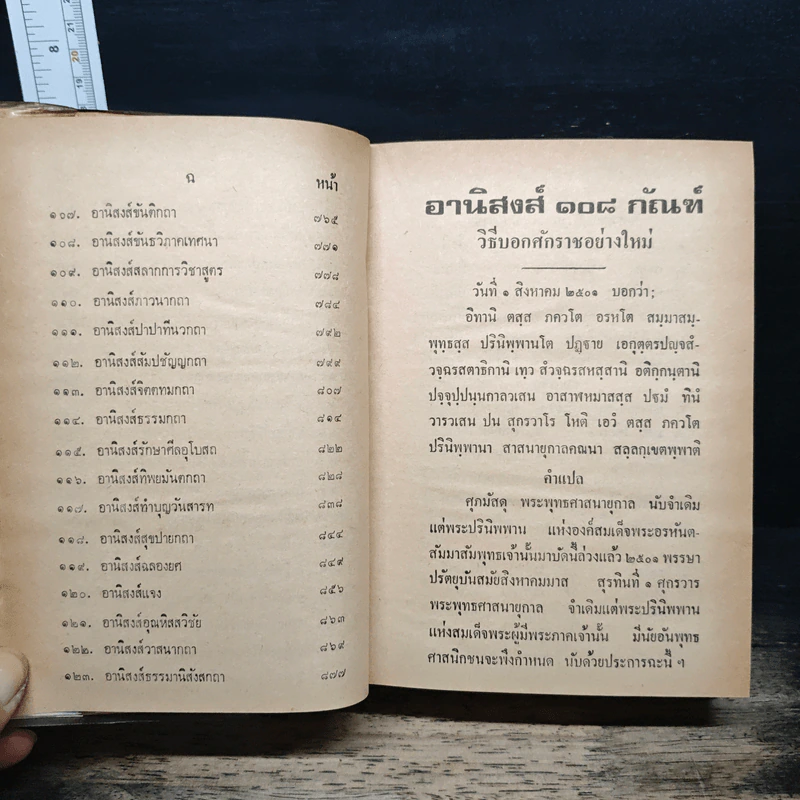 8
21
20
19
ฉ
หน้า
๑๐๗. อานิสงส์ขันติกถา ๗๖๕
๑๐๘. อานิสงส์ขันธวิภาคเทศนา ๗๗๑
๑๐๙. อานิสงส์สลากการวิชาสูตร ๗๗๘
๑๑๐. อานิสงส์ภาวนากถา ๗๘๔
๑๑๑. อานิสงส์ปาปาทีนวกถา ๗๙๒
๑๑๒. อานิสงส์สัมปชัญญกถา ๗๙๙
๑๑๓. อานิสงส์จิตตทมกถา ๘๐๗
๑๑๔. อานิสงส์ธรรมกถา ๘๑๔
๑๑๕. อานิสงส์รักษาศีลอุโบสถ ๘๒๒
๑๑๖. อานิสงส์ทิพยมันตกถา ๘๒๘
๑๑๗. อานิสงส์ทำบุญวันสารท ๘๓๘
๑๑๘. อานิสงส์สุขปายกถา ๘๔๔
๑๑๙. อานิสงส์ฉลองยศ ๘๔๙
๑๒๐. อานิสงส์แจง ๘๕๖
๑๒๑. อานิสงส์อุณหิสสวิชัย ๘๖๓
๑๒๒. อานิสงส์วาสนากถา ๘๖๙
๑๒๓. อานิสงส์ธรรมานิสังสกถา ๘๗๗
อานิสงส์ ๑๐๘ กัณฑ์
วิธีบอกศักราชอย่างใหม่
วันที่ ๑ สิงหาคม ๒๕๐๑ บอกว่า;
อิทานิ ตสฺส ภควโต อรหโต สมฺมาสมฺ-
พุทฺธสฺส ปรินิพฺพานโต ปฏฺฐาย เอกุตฺตรปญฺจสํ-
วจฺฉรสตาธิกานิ เทฺว สํวจฺฉรสหสฺสานิ อติกฺกนฺตานิ
ปจฺจุปฺปนฺนกาลวเสน อาสาฬหมาสสฺส ปฐมํ ทินํ
วารวเสน ปน สุกรวาโร โหติ เอวํ ตสฺส ภควโต
ปรินิพฺพานา สาสนายุกาลคณนา สลฺลกฺเขตพฺพาติ
คำแปล
ศุภมัสดุ พระพุทธศาสนายุกาล นับจำเดิม
แต่พระปรินิพพาน แห่งองค์สมเด็จพระอรหันต-
สัมมาสัมพุทธเจ้านั้นมาบัดนี้ล่วงแล้ว ๒๕๐๑ พรรษา
ปรัตยุบันสมัยสิงหาคมมาส สุรทินที่ ๑ ศุกรวาร
พระพุทธศาสนายุกาล จำเดิมแต่พระปรินิพพาน
แห่งสมเด็จพระผู้มีพระภาคเจ้านั้น มีนัยอันพุทธ
ศาสนิกชนจะพึงกำหนด นับด้วยประการฉะนี้ ฯ